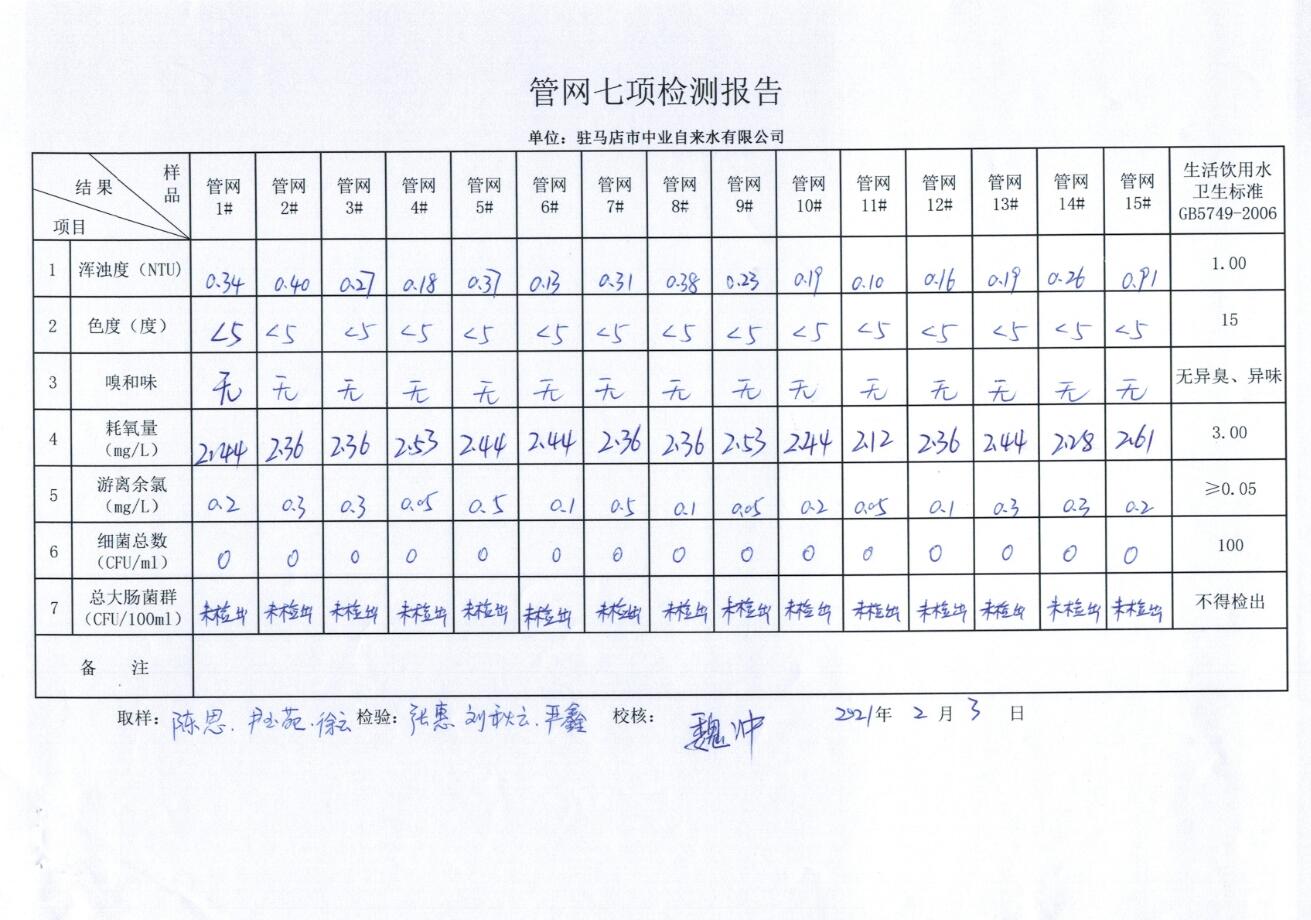 管网七项检测报告
单位：驻马店市中业自来水有限公司
结果 样品 项目 管网1# 管网2# 管网3# 管网4# 管网5# 管网6# 管网7# 管网8# 管网9# 管网10# 管网11# 管网12# 管网13# 管网14# 管网15# 生活饮用水卫生标准GB5749-2006
1 浑浊度（NTU） 0.34 0.40 0.27 0.18 0.37 0.13 0.31 0.38 0.23 0.19 0.10 0.16 0.19 0.26 1.00
2 色度（度） <5 <5 <5 <5 <5 <5 <5 <5 <5 <5 <5 <5 <5 <5 <5 15
3 嗅和味 无 无 无 无 无 无 无 无 无 无 无 无 无 无 无 无异臭、异味
4 耗氧量（mg/L） 2.44 2.36 2.36 2.53 2.44 2.44 2.36 2.36 2.53 2.44 2.12 2.36 2.44 2.28 2.61 3.00
5 游离余氯（mg/L） 0.2 0.3 0.3 0.05 0.5 0.1 0.5 0.1 0.05 0.2 0.05 0.1 0.3 0.3 0.2 ≥0.05
6 细菌总数（CFU/ml） 0 0 0 0 0 0 0 0 0 0 0 0 0 0 0 100
7 总大肠菌群（CFU/100ml） 未检出 未检出 未检出 未检出 未检出 未检出 未检出 未检出 未检出 未检出 未检出 未检出 未检出 未检出 未检出 不得检出
备 注
取样：陈思. 尹玉苑. 徐云 检验：张惠 刘秋云. 严鑫 校核：魏冲 2021年 2 月 3 日